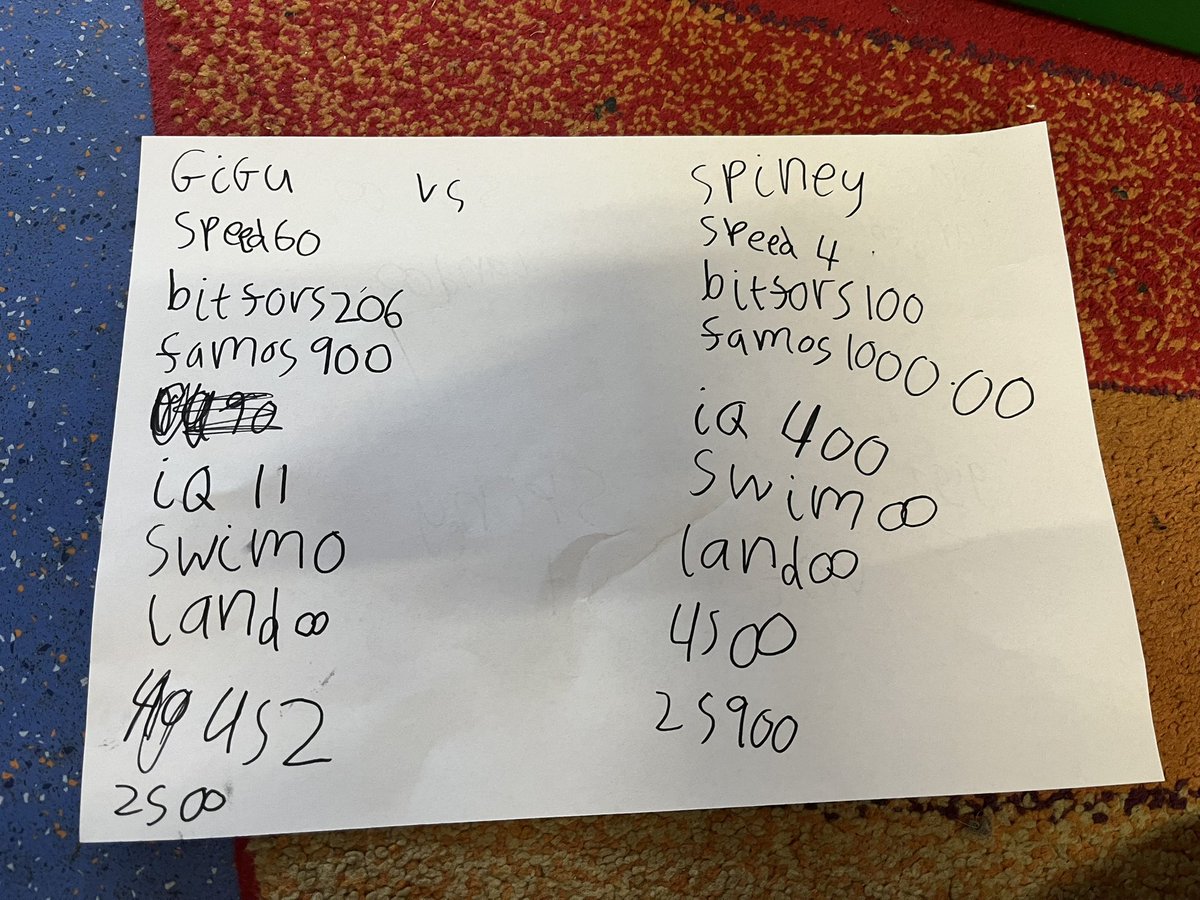 GiGu vs spiney
speed 60
bitfors 206
famos 900
iQ 11
swim 0
land ∞
4s2
2s ∞
speed 4
bitfors 100
famos 1000.00
iQ 400
swim ∞
land ∞
4s ∞
2s 900